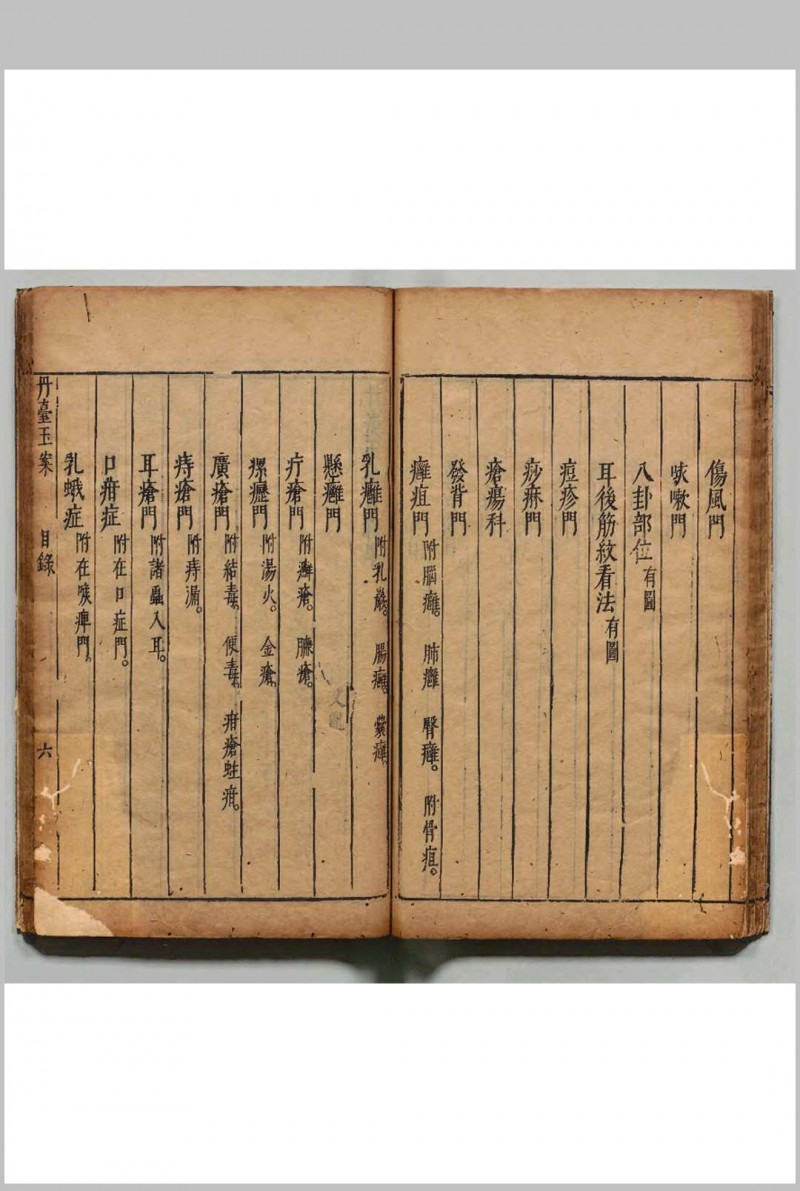 傷風門
咳嗽門
八卦部位有圖
耳後筋紋看法有圖
痘疹門
痧痳門
瘡瘍科
發背門
癰疽門 附腦癰。 肺癰 腎癰。 附骨疽。
乳癰門 附乳巖。 腸癰。
懸癰門
疔瘡門 附癬瘡。 臁瘡。
瘰癧門 附湯火。 金瘡。
廣瘡門 附結毒。 便毒。 疳瘡蛀疳。
痔瘡門 附痔漏。
耳瘡門 附諸蟲入耳。
口疳症 附在口症門。
乳蛾症 附在喉痺門。
丹臺玉案 目錄 六